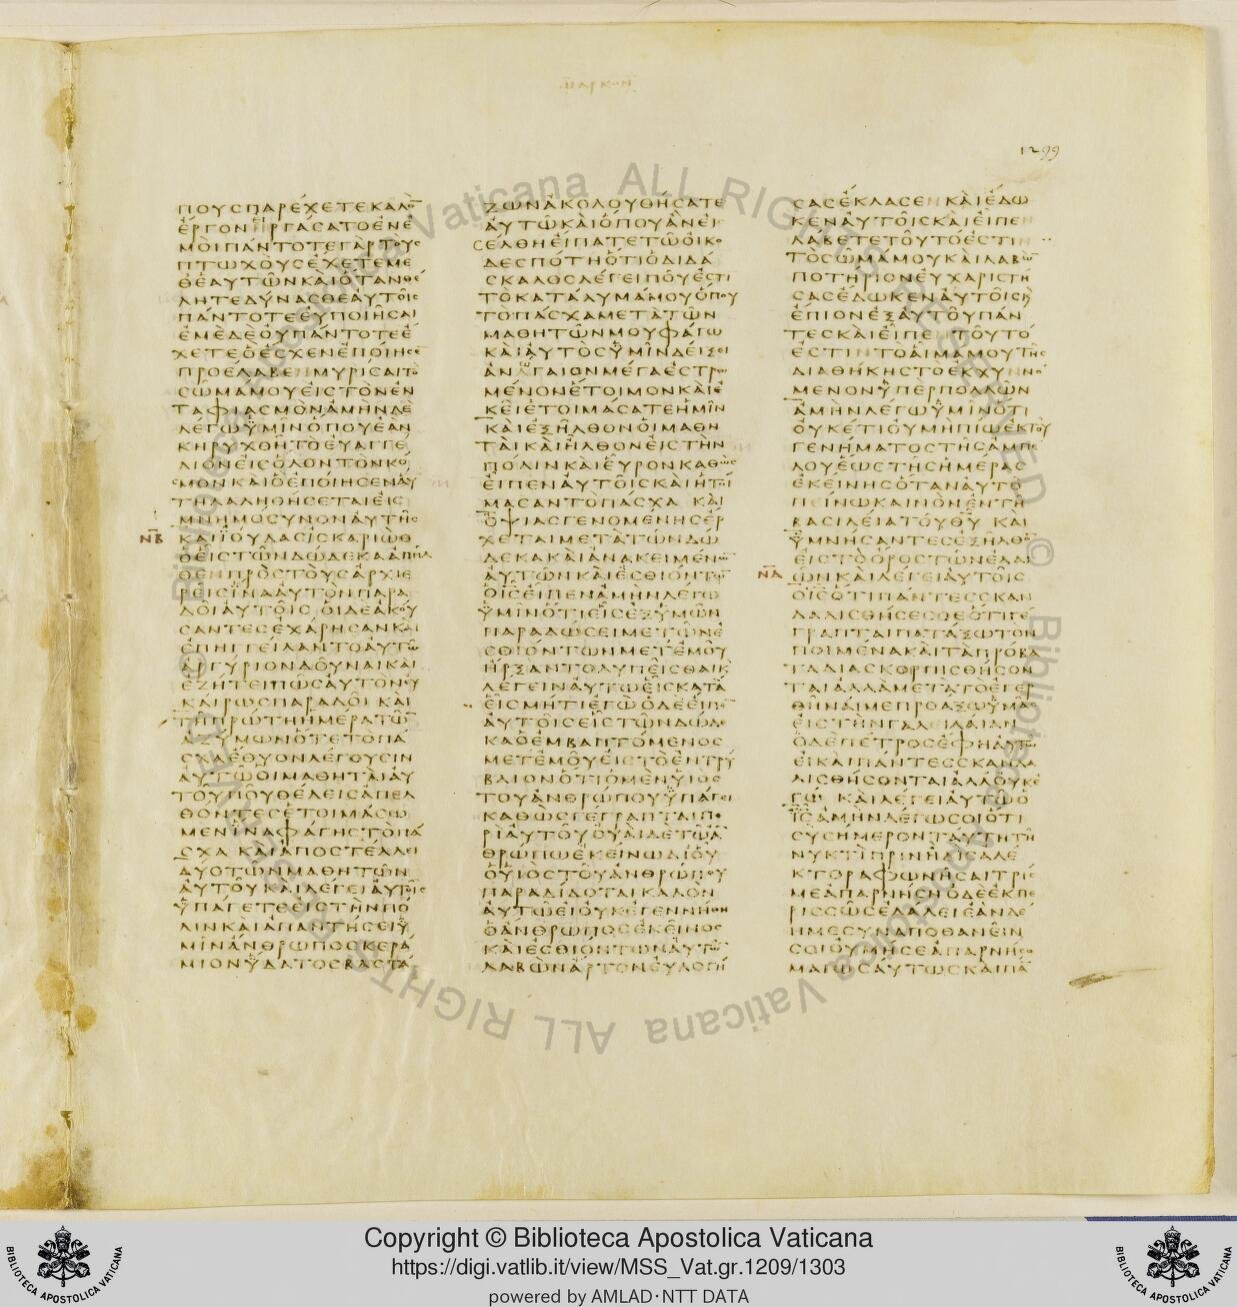 ΜΑΡΚΟΝ
1299
ΠΟΥΣΠΑΡΕΧΕΤΕΚΑΛΟ̅
ΕΡΓΟΝΗΡΓΑΣΑΤΟΕΝΕ
ΜΟΙΠΑΝΤΟΤΕΓΑΡΤΟΥΣ
ΠΤΩΧΟΥΣΕΧΕΤΕΜΕ
ΘΕΑΥΤΩΝΚΑΙΟΤΑΝΘΕ
ΛΗΤΕΔΥΝΑΣΘΕΑΥΤΟΙΣ
ΠΑΝΤΟΤΕΕΥΠΟΙΗΣΑΙ
ΕΜΕΔΕΟΥΠΑΝΤΟΤΕΕ
ΧΕΤΕΟΕΣΧΕΝΕΠΟΙΗΣΕ
ΠΡΟΕΛΑΒΕΝΜΥΡΙΣΑΙΤΟ
ΣΩΜΑΜΟΥΕΙΣΤΟΝΕΝ
ΤΑΦΙΑΣΜΟΝΑΜΗΝΔΕ
ΛΕΓΩΥΜΙΝΟΠΟΥΕΑΝ
ΚΗΡΥΧΘΗΤΟΕΥΑΓΓΕ
ΛΙΟΝΕΙΣΟΛΟΝΤΟΝΚΟ
ΣΜΟΝΚΑΙΟΕΠΟΙΗΣΕΝΑΥ
ΤΗΛΑΛΗΘΗΣΕΤΑΙΕΙΣ
ΜΝΗΜΟΣΥΝΟΝΑΥΤΗΣ
Ν̅Β̅ ΚΑΙΙΟΥΔΑΣΙΣΚΑΡΙΩΘ
ΟΕΙΣΤΩΝΔΩΔΕΚΑΑΠΗΛ
ΘΕΝΠΡΟΣΤΟΥΣΑΡΧΙΕ
ΡΕΙΣΙΝΑΑΥΤΟΝΠΑΡΑ
ΔΟΙΑΥΤΟΙΣ ΟΙΔΕΑΚΟΥ
ΣΑΝΤΕΣΕΧΑΡΗΣΑΝΚΑΙ
ΕΠΗΓΓΕΙΛΑΝΤΟΑΥΤΩ
ΑΡΓΥΡΙΟΝΔΟΥΝΑΙΚΑΙ
ΕΖΗΤΕΙΠΩΣΑΥΤΟΝΕΥ
ΚΑΙΡΩΣΠΑΡΑΔΟΙ ΚΑΙ
ΤΗΠΡΩΤΗΗΜΕΡΑΤΩ̅
ΑΖΥΜΩΝΟΤΕΤΟΠΑ
ΣΧΑΕΘΥΟΝΛΕΓΟΥΣΙΝ
ΑΥΤΩΟΙΜΑΘΗΤΑΙΑΥ
ΤΟΥΠΟΥΘΕΛΕΙΣΑΠΕΛ
ΘΟΝΤΕΣΕΤΟΙΜΑΣΩ
ΜΕΝΙΝΑΦΑΓΗΣΤΟΠΑ
ΣΧΑ ΚΑΙΑΠΟΣΤΕΛΛΕΙ
ΔΥΟΤΩΝΜΑΘΗΤΩΝ
ΑΥΤΟΥΚΑΙΛΕΓΕΙΑΥΤΟΙΣ
ΥΠΑΓΕΤΕΕΙΣΤΗΝΠΟ
ΛΙΝΚΑΙΑΠΑΝΤΗΣΕΙΥ
ΜΙΝΑΝΘΡΩΠΟΣΚΕΡΑ
ΜΙΟΝΥΔΑΤΟΣΒΑΣΤΑ
ΖΩΝΑΚΟΛΟΥΘΗΣΑΤΕ
ΑΥΤΩΚΑΙΟΠΟΥΑΝΕΙ
ΣΕΛΘΗΕΙΠΑΤΕΤΩΟΙΚΟ
ΔΕΣΠΟΤΗΟΤΙΟΔΙΔΑ
ΣΚΑΛΟΣΛΕΓΕΙΠΟΥΕΣΤΙ
ΤΟΚΑΤΑΛΥΜΑΜΟΥΟΠΟΥ
ΤΟΠΑΣΧΑΜΕΤΑΤΩΝ
ΜΑΘΗΤΩΝΜΟΥΦΑΓΩ
ΚΑΙΑΥΤΟΣΥΜΙΝΔΕΙΞΕΙ
ΑΝΑΓΑΙΟΝΜΕΓΑΕΣΤΡΩ
ΜΕΝΟΝΕΤΟΙΜΟΝΚΑΙΕ
ΚΕΙΕΤΟΙΜΑΣΑΤΕΗΜΙΝ
ΚΑΙΕΞΗΛΘΟΝΟΙΜΑΘΗ
ΤΑΙΚΑΙΗΛΘΟΝΕΙΣΤΗΝ
ΠΟΛΙΝΚΑΙΕΥΡΟΝΚΑΘΩΣ
ΕΙΠΕΝΑΥΤΟΙΣΚΑΙΗΤΟΙ
ΜΑΣΑΝΤΟΠΑΣΧΑ ΚΑΙ
ΟΨΙΑΣΓΕΝΟΜΕΝΗΣΕΡ
ΧΕΤΑΙΜΕΤΑΤΩΝΔΩ
ΔΕΚΑΚΑΙΑΝΑΚΕΙΜΕΝΩ̅
ΑΥΤΩΝΚΑΙΕΣΘΙΟΝΤΩ̅
ΟΙΣΕΙΠΕΝΑΜΗΝΛΕΓΩ
ΥΜΙΝΟΤΙΕΙΣΕΞΥΜΩΝ
ΠΑΡΑΔΩΣΕΙΜΕΤΩΝΕ
ΣΘΙΟΝΤΩΝΜΕΤΕΜΟΥ
ΗΡΞΑΝΤΟΛΥΠΕΙΣΘΑΙΚ
ΛΕΓΕΙΝΑΥΤΩΕΙΣΚΑΤΑ
ΕΙΣΜΗΤΙΕΓΩΟΔΕΕΙΠΕ̅
ΑΥΤΟΙΣΕΙΣΤΩΝΔΩΔΕ
ΚΑΟΕΜΒΑΠΤΟΜΕΝΟΣ
ΜΕΤΕΜΟΥΕΙΣΤΟΕΝΤΡΥ
ΒΛΙΟΝΟΤΙΟΜΕΝΥΙΟΣ
ΤΟΥΑΝΘΡΩΠΟΥΥΠΑΓΕΙ
ΚΑΘΩΣΓΕΓΡΑΠΤΑΙΠΕ
ΡΙΑΥΤΟΥΟΥΑΙΔΕΤΩΑ̅
ΘΡΩΠΩΕΚΕΙΝΩΔΙΟΥ
ΟΥΙΟΣΤΟΥΑΝΘΡΩΠΟΥ
ΠΑΡΑΔΙΔΟΤΑΙΚΑΛΟΝ
ΑΥΤΩΕΙΟΥΚΕΓΕΝΝΗΘΗ
ΟΑΝΘΡΩΠΟΣΕΚΕΙΝΟΣ
ΚΑΙΕΣΘΙΟΝΤΩΝΑΥΤΩ̅
ΛΑΒΩΝΑΡΤΟΝΕΥΛΟΓΗ
ΣΑΣΕΚΛΑΣΕΝΚΑΙΕΔΩ
ΚΕΝΑΥΤΟΙΣΚΑΙΕΙΠΕ
ΛΑΒΕΤΕΤΟΥΤΟΕΣΤΙ
ΤΟΣΩΜΑΜΟΥΚΑΙΛΑΒΩ̅
ΠΟΤΗΡΙΟΝΕΥΧΑΡΙΣΤΗ
ΣΑΣΕΔΩΚΕΝΑΥΤΟΙΣΚ
ΕΠΙΟΝΕΞΑΥΤΟΥΠΑΝ
ΤΕΣΚΑΙΕΙΠΕ ΤΟΥΤΟ
ΕΣΤΙΝΤΟΑΙΜΑΜΟΥΤΗΣ
ΔΙΑΘΗΚΗΣΤΟΕΚΧΥΝΝΟ
ΜΕΝΟΝΥΠΕΡΠΟΛΛΩΝ
ΑΜΗΝΛΕΓΩΥΜΙΝΟΤΙ
ΟΥΚΕΤΙΟΥΜΗΠΙΩΕΚΤΟΥ
ΓΕΝΗΜΑΤΟΣΤΗΣΑΜΠΕ
ΛΟΥΕΩΣΤΗΣΗΜΕΡΑΣ
ΕΚΕΙΝΗΣΟΤΑΝΑΥΤΟ
ΠΕΙΝΩΚΑΙΝΟΝΕΝΤΗ
ΒΑΣΙΛΕΙΑΤΟΥΘ̅Υ̅ ΚΑΙ
ΥΜΝΗΣΑΝΤΕΣΕΞΗΛΘΟ̅
ΕΙΣΤΟΟΡΟΣΤΩΝΕΛΑΙ
Ν̅Δ̅ ΩΝΚΑΙΛΕΓΕΙΑΥΤΟΙΣ
ΟΙΣΟΤΙΠΑΝΤΕΣΣΚΑΝ
ΔΑΛΙΣΘΗΣΕΣΘΕΟΤΙΓΕ
ΓΡΑΠΤΑΙΠΑΤΑΞΩΤΟΝ
ΠΟΙΜΕΝΑΚΑΙΤΑΠΡΟΒΑ
ΤΑΔΙΑΣΚΟΡΠΙΣΘΗΣΟΝ
ΤΑΙΑΛΛΑΜΕΤΑΤΟΕΓΕΡ
ΘΗΝΑΙΜΕΠΡΟΑΞΩΥΜΑΣ
ΕΙΣΤΗΝΓΑΛΕΙΛΑΙΑΝ
ΟΔΕΠΕΤΡΟΣΕΦΗΑΥΤΩ
ΕΙΚΑΙΠΑΝΤΕΣΣΚΑΝΔΑ
ΛΙΣΘΗΣΟΝΤΑΙΑΛΛΟΥΚΕ
ΓΩ ΚΑΙΛΕΓΕΙΑΥΤΩΟ
Ι̅Σ̅ΑΜΗΝΛΕΓΩΣΟΙΟΤΙ
ΣΥΣΗΜΕΡΟΝΤΑΥΤΗΤΗ
ΝΥΚΤΙΠΡΙΝΗΔΙΣΑΛΕ
ΚΤΟΡΑΦΩΝΗΣΑΙΤΡΙΣ
ΜΕΑΠΑΡΝΗΣΗΟΔΕΕΚΠΕ
ΡΙΣΣΩΣΕΛΑΛΕΙΕΑΝΔΕ
ΗΜΕΣΥΝΑΠΟΘΑΝΕΙΝ
ΣΟΙΟΥΜΗΣΕΑΠΑΡΝΗΣΟ
ΜΑΙΩΣΑΥΤΩΣΚΑΙΠΑ̅
Copyright © Biblioteca Apostolica Vaticana
https://digi.vatlib.it/view/MSS_Vat.gr.1209/1303
powered by AMLAD·NTT DATA
BIBLIOTECA APOSTOLICA VATICANA
BIBLIOTECA APOSTOLICA VATICANA